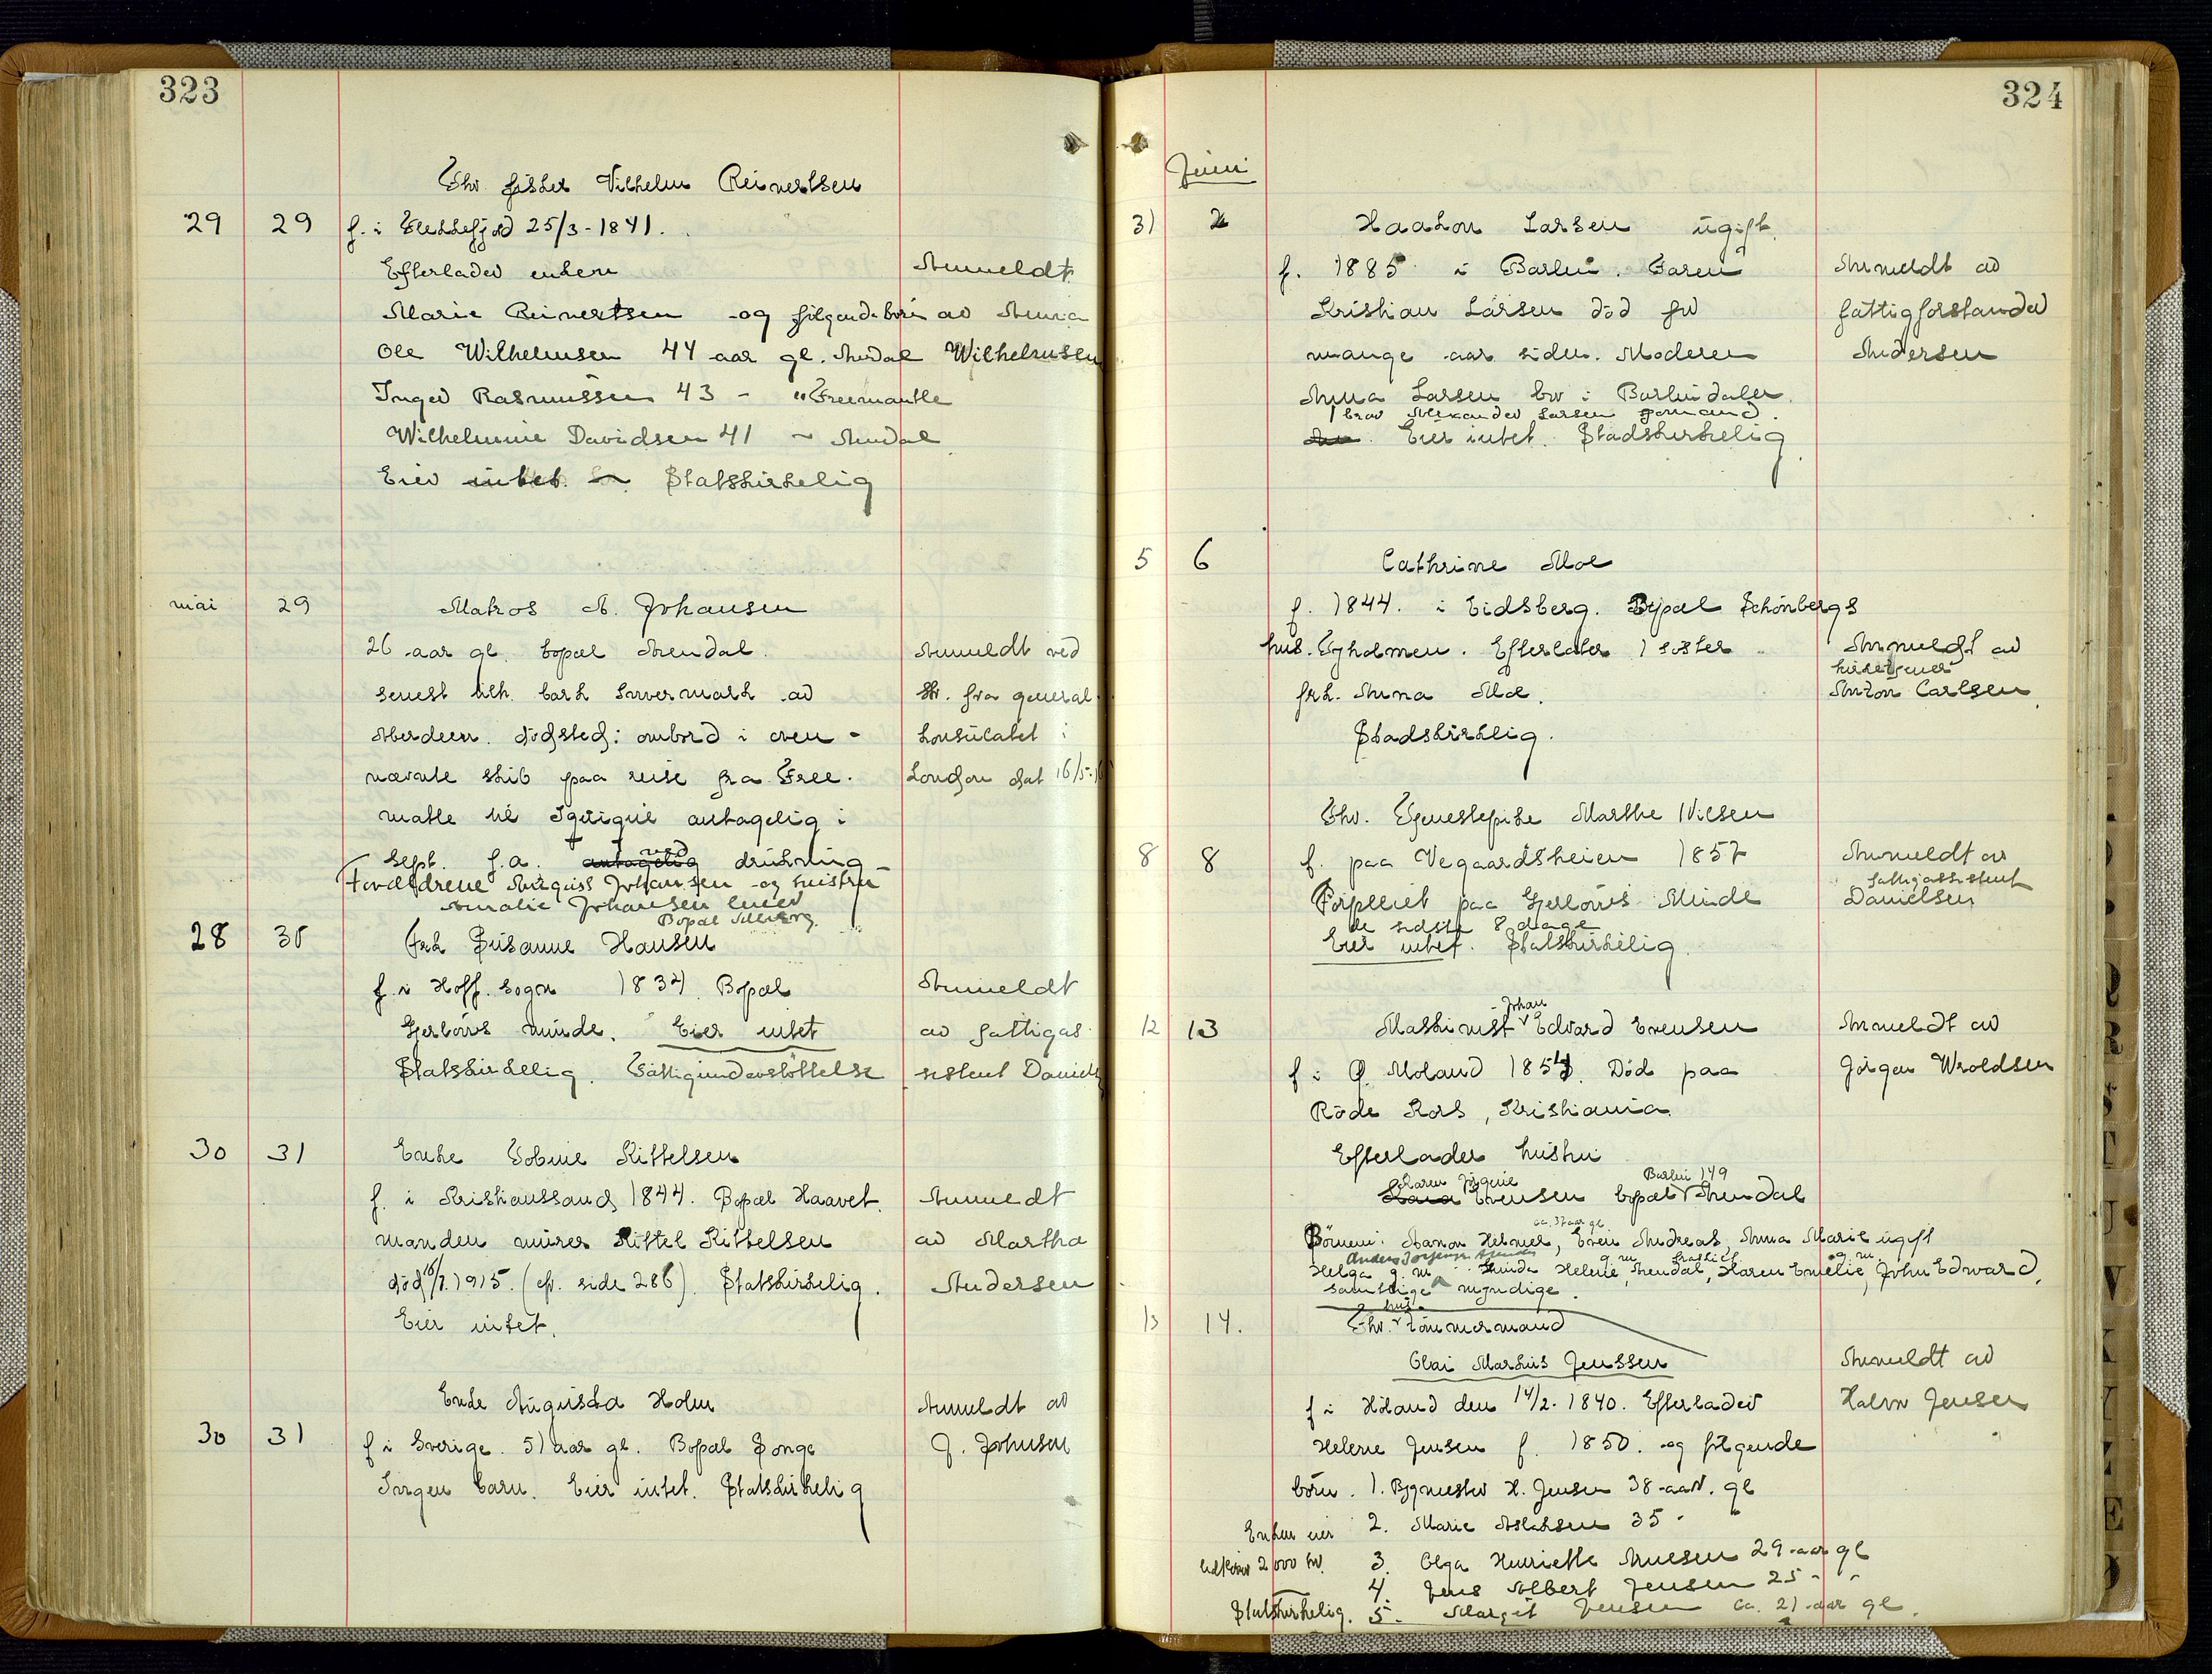 323
Fhv. fisker Vilhelm Reinertsen
29 29 f. i Flekkefjord 25/3-1841.
Efterlader enken Anmeldt
Marie Reinertsen og følgende børn av Anna
Ole Wilhelmsen 44 aar gl. Arendal Wilhelmsen
Inger Rasmussen 43 - " Freemantle
Wilhelmine Davidsen 41 - Arendal
Eier intet. Statskirkelig
mai 29 Matros A. Johansen
26 aar gl. bopæl Arendal. Anmeldt ved
senest tilh. bark Invermark av skr. fra general
Aberdeen. dødsted: ombord i oven- konsulatet i
nævnte skib paa reise fra Free- London dat 16/5-16
matle til Iquique antagelig i
Sept. f.a. antagelig ved drukning
Forældrene August Johansen og hustru
Amalie Johansen lever
Bopæl
28 30 Frk Susanne Hansen
f. i Hoff sogn 1832 Bopæl Anmeldt
Gjerløws minde. Eier intet av fattigas
Statskirkelig. Fattigunderstøttelse sistent Daniels
30 31 Enke Tobine Kittelsen
f. i Kristianssand 1844. Bopæl Haavet. Anmeldt
manden murer Kittel Kittelsen av Martha
død 1915. (cfr. side 286). Statskirkelig. Andersen
Eier intet.
Enke Augusta Holm Anmeldt av
30 31 f i Sverige. 51 aar gl. Bopæl Songe J. Johnsen
Ingen barn. Eier intet. Statskirkelig
324
Juni
31 2 Haakon Larsen ugift.
f. 1885 i Barbu. Faren Anmeldt av
Kristian Larsen død for fattigforstander
mange aar siden. Moderen Andersen
Anna Larsen bor i Barbudalen.
1 bror Alexander Larsen formand.
Eier intet. Stadskirkelig
5 6 Cathrine Moe
f. 1844. i Eidsberg. Bopæl Schönbergs
hus. Tyholmen. Efterlater 1 søster Anmeldt av
kirketjener
frk. Anna Moe. Anton Carlsen.
Stadskirkelig.
Fhv. Tjenestepike Marthe Nilsen
8 8 f. paa Vegaardsheien 1857 Anmeldt av
fattigassistent
Forpleiet paa Gjerløws Minde Danielsen
de sidste 8 dage
Eier intet. Statskirkelig.
Johan
12 13 Maskinist Edvard Evensen Anmeldt av
f i Ø. Moland 1854. Død paa Jørgen Wroldsen
Røde Kors, Kristiania.
Efterlader hustru
Karen Jørgine Barbu 149
Evensen bopæl Arendal
ca. 37 aar gl
Børnene: Aanon Helmer, Even Andreas, Anna Marie ugift
Helga g. m. Helene, Arendal, Karen Emelie, John Edward,
samtlige myndige.
13 14. Fhv. tømmermand
Olai Markus Jenssen Anmeldt av
f i Høland den 14/2. 1840. Efterlader Halvor Jensen
Helene Jensen f. 1850. og følgende
børn. 1. Bygmester H. Jensen 38 aar. gl
Enken eier 2. Marie Aslaksen 35 -
2000 kr. 3. Olga Henriette Arnesen 29 aar gl
4. Jens Albert Jensen 25 - -
Statskirkelig. 5. Margit Jensen ca. 21 aar gl.